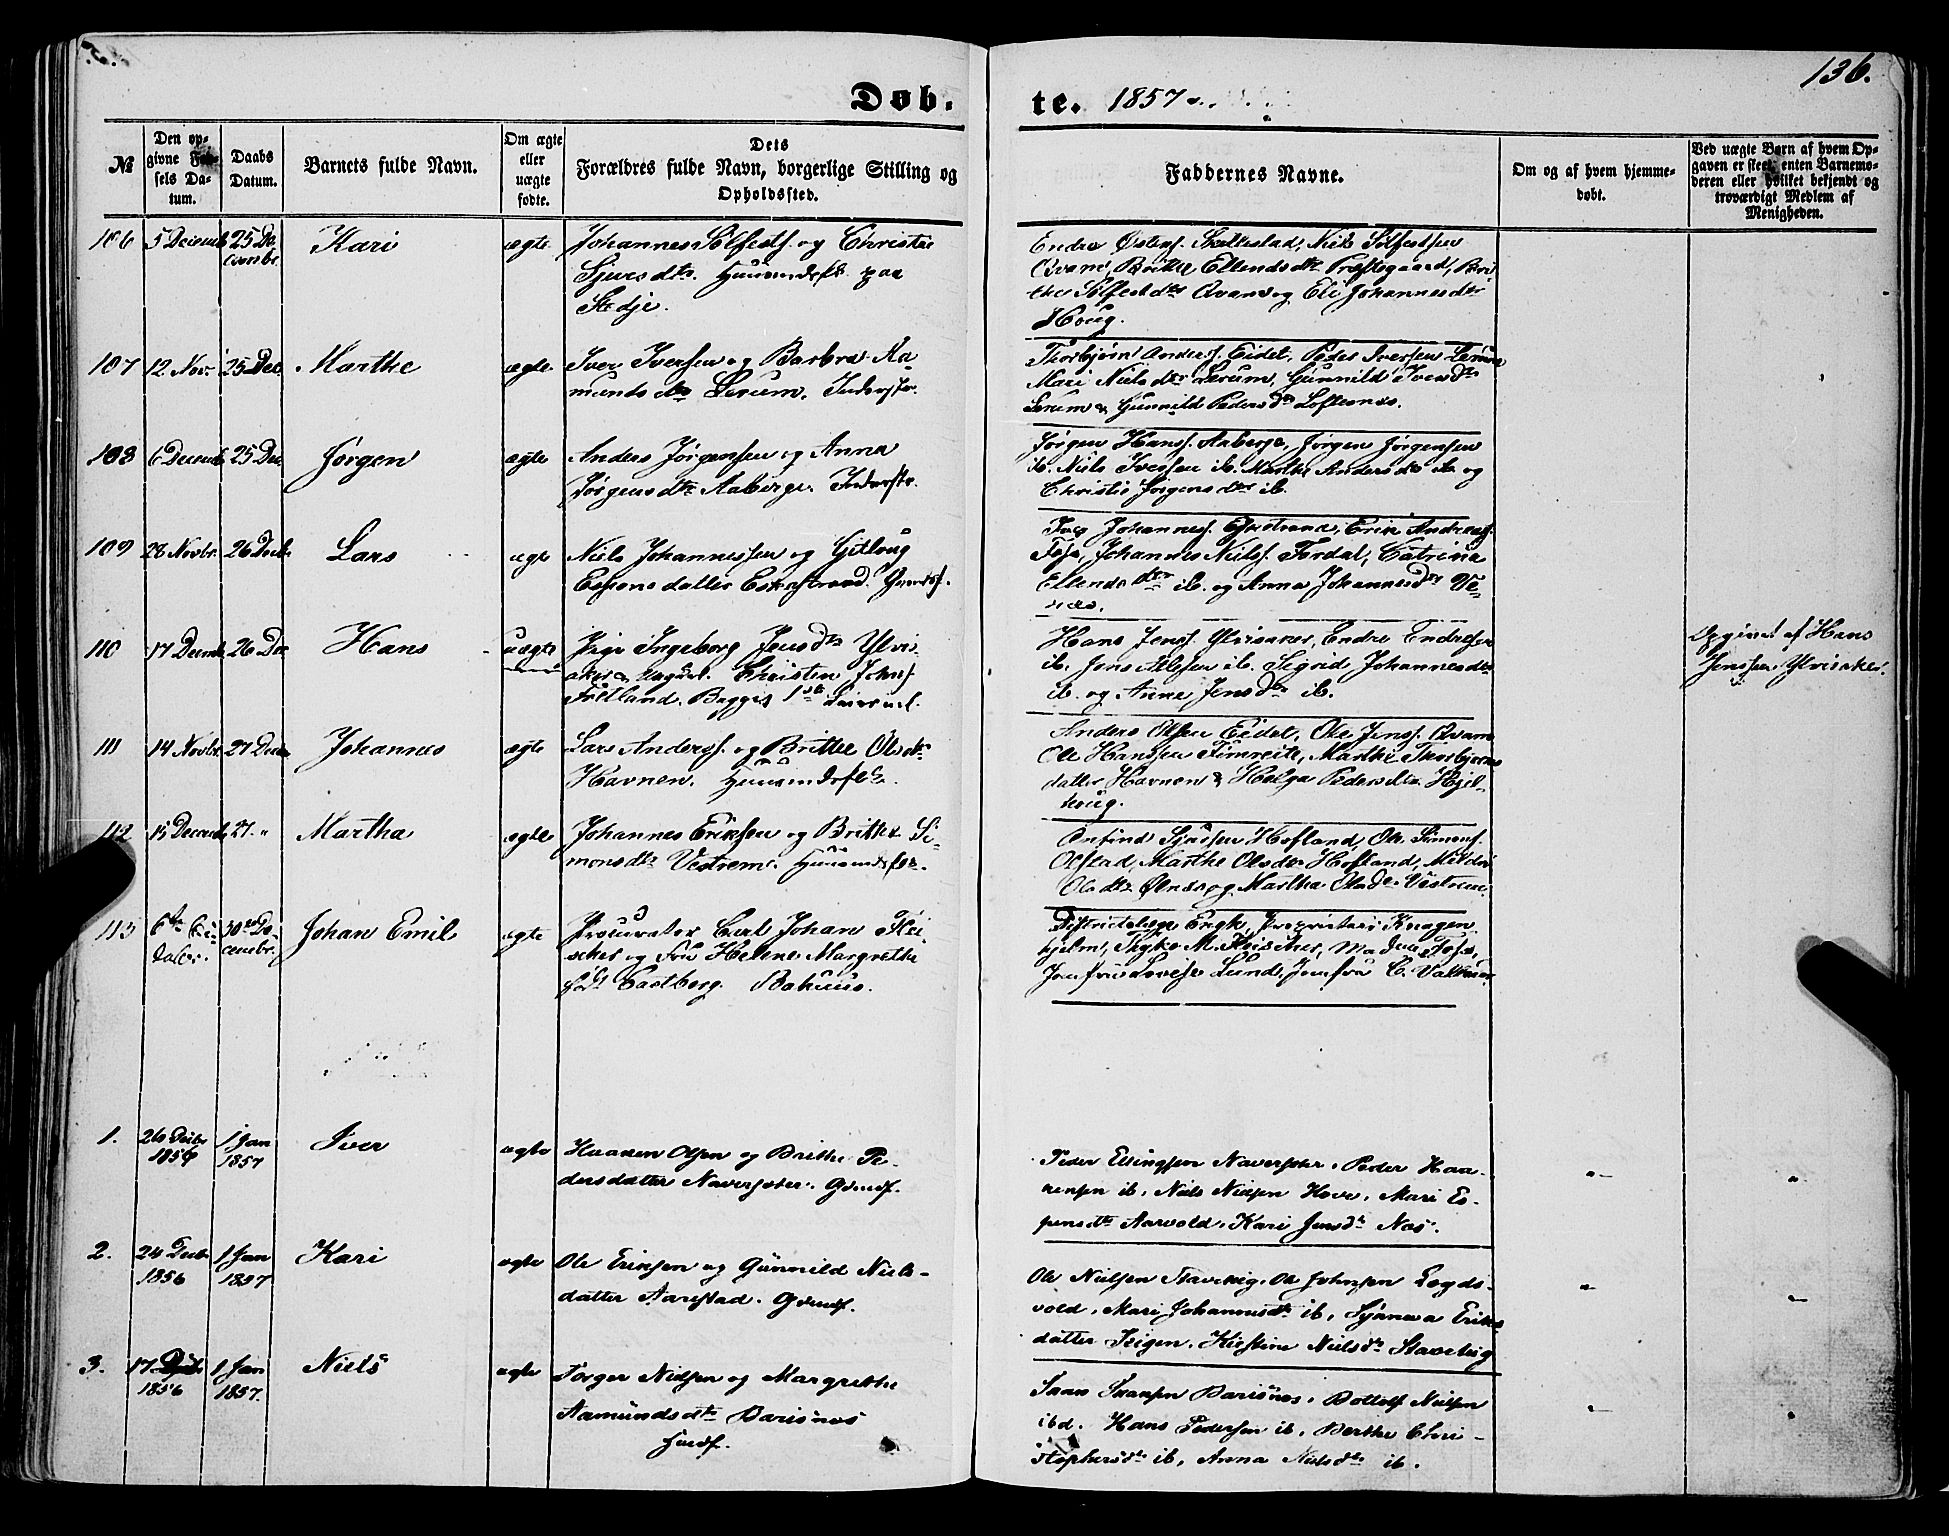 136.
Døb. te. 1857
№
Den op-
givne Fød-
sels Da-
tum.
Daabs
Datum.
Barnets fulde Navn.
Om ægte
eller
uægte
fødte.
Dets
Forældres fulde Navn, borgerlige Stilling og
Opholdssted.
Faddernes Navne.
Om og af hvem hjemme-
døbt.
Ved uægte Børn af hvem Op-
gaven er skeet, enten Barnemo-
deren eller hvilket bekjendt og
troværdigt Medlem af
Menigheden.
106 5 Decemb 25 De
cembr. Kari ægte
Johannes Sølfests. og Christie
Sjursdtr. Huusmdsfk. paa
Stedje.
Endre Østens. Niels Sølfestsen
Qvam, Brithe Ellendsdtr Præstegaard, Bri
the Sølfestdtr Qvam og Eli Johannesdtr
Houg.
107 12 Nov. 25 Dec. Marthe ægte
Iver Iversen og Barbra Aa-
mundsdtr Lerum, Inderstr.
Thorbjørn Anders. Eidet, Peder Iversen Lerum
Mari Nielsdtr Lerum, Gunnild Iversdtr
Lerum & Gunnild Pedersdtr Loftesnæs.
108 6 Decemb 25 Dec Jørgen ægte
Anders Jørgensen og Anna
Jørgensdtr Aaberge. Inderstr.
Jørgen Hanss. Aaberge, Jørgen Jørgensen
ib. Niels Iversen ib. Marthe Andersdtr ib og
Christie Jørgensdtr ib.
109 28 Novbr. 26 Decb. Lars ægte
Niels Johannessen og Gjetloug
Espensdatter Eskestrand. Gmdsf.
Johanness. Eskestrand, Erik Andreass.
Foss, Johannes Niels. Tordal, Catrina
Ellendsdtr ib. og Anna Johannesdtr Ve-
110 17 Decemb 26 Dec Hans uægte
Pige Ingeborg Jensdtr Ylvis-
aker & ungkl. Christen Johns.
Fretland. Begges 1ste Leierm.
Hans Jenss. Ylvisaker, Endre Endresen
ib. Jens Atlesen ib. Sigrid Johannesdtr
ib. og Anna Jensdtr ib.
Opgivet af Hans
Jenssen Ylvisaker.
111 14 Novbr. 27 Decbr Johannes ægte
Lars Anderss. og Brithe Olsdtr
Havnen. Huusmdsfk.
Anders Olsen Eidet, Ole Jenss. Qvam
Ole Hanssen Fimreite, Marthe Thorbjørns
datter Havnen & Helga Pedersdtr. Hjel-
houg.
112 15 Decemb 27 " Martha ægte
Johannes Eriksen og Brithe Si-
monsdtr Vestrem. Huusmdsfk.
Anfind Sjursen Hofland, Ole Simons.
Olstad, Marthe Olsdtr Hofland,
Olsdtr Ølnæs og Martha Olsdr. Vestrem.
113 6te 30te De-
cembr. Johan Emil ægte
Procurator Carl Johan Flei-
scher og Frue Helene Margrethe
født Castberg. Bahuus.
Districtslæge Engh, Proprietair Knagen-
hjelm, Tyge M. Fleischer, Madme Foss,
Jomfrue Lovise Lund, Jomfru C.
1. 26 Decbr
1856 1 Jan
1857 Iver ægte
Haaken Olsen og Brithe Pe-
dersdatter Naversæter. Gbmdf.
Peder Ellingsen Naversæter. Peder Haa-
kensen ib, Niels Nielsen Hove, Mari Es-
pensdtr Aarvold. Kari Jensdtr Næs.
2. 24 Decbr
1856 1 Jan
1857 Kari ægte
Ole Eriksen og Gunnild Niels-
datter Aarestad. Gbmdf.
Ole Nielsen Stavehaug, Ole Johnsen Lægds-
vold. Mari Johannesdtr ib, Synneva Eriks
datter Kirstine Nielsdtr Stavehaug
3. 17 Decbr
1856 1 Jan
1857. Niels ægte
Torger Nielsen og Margrethe
Aamundsdtr Barsnæs
Barsnæs. Bottolf Nielsen
ibd. Hans Pedersen ib, Berthe Chri-
stophersdtr ib, Anna Nielsdtr ib.